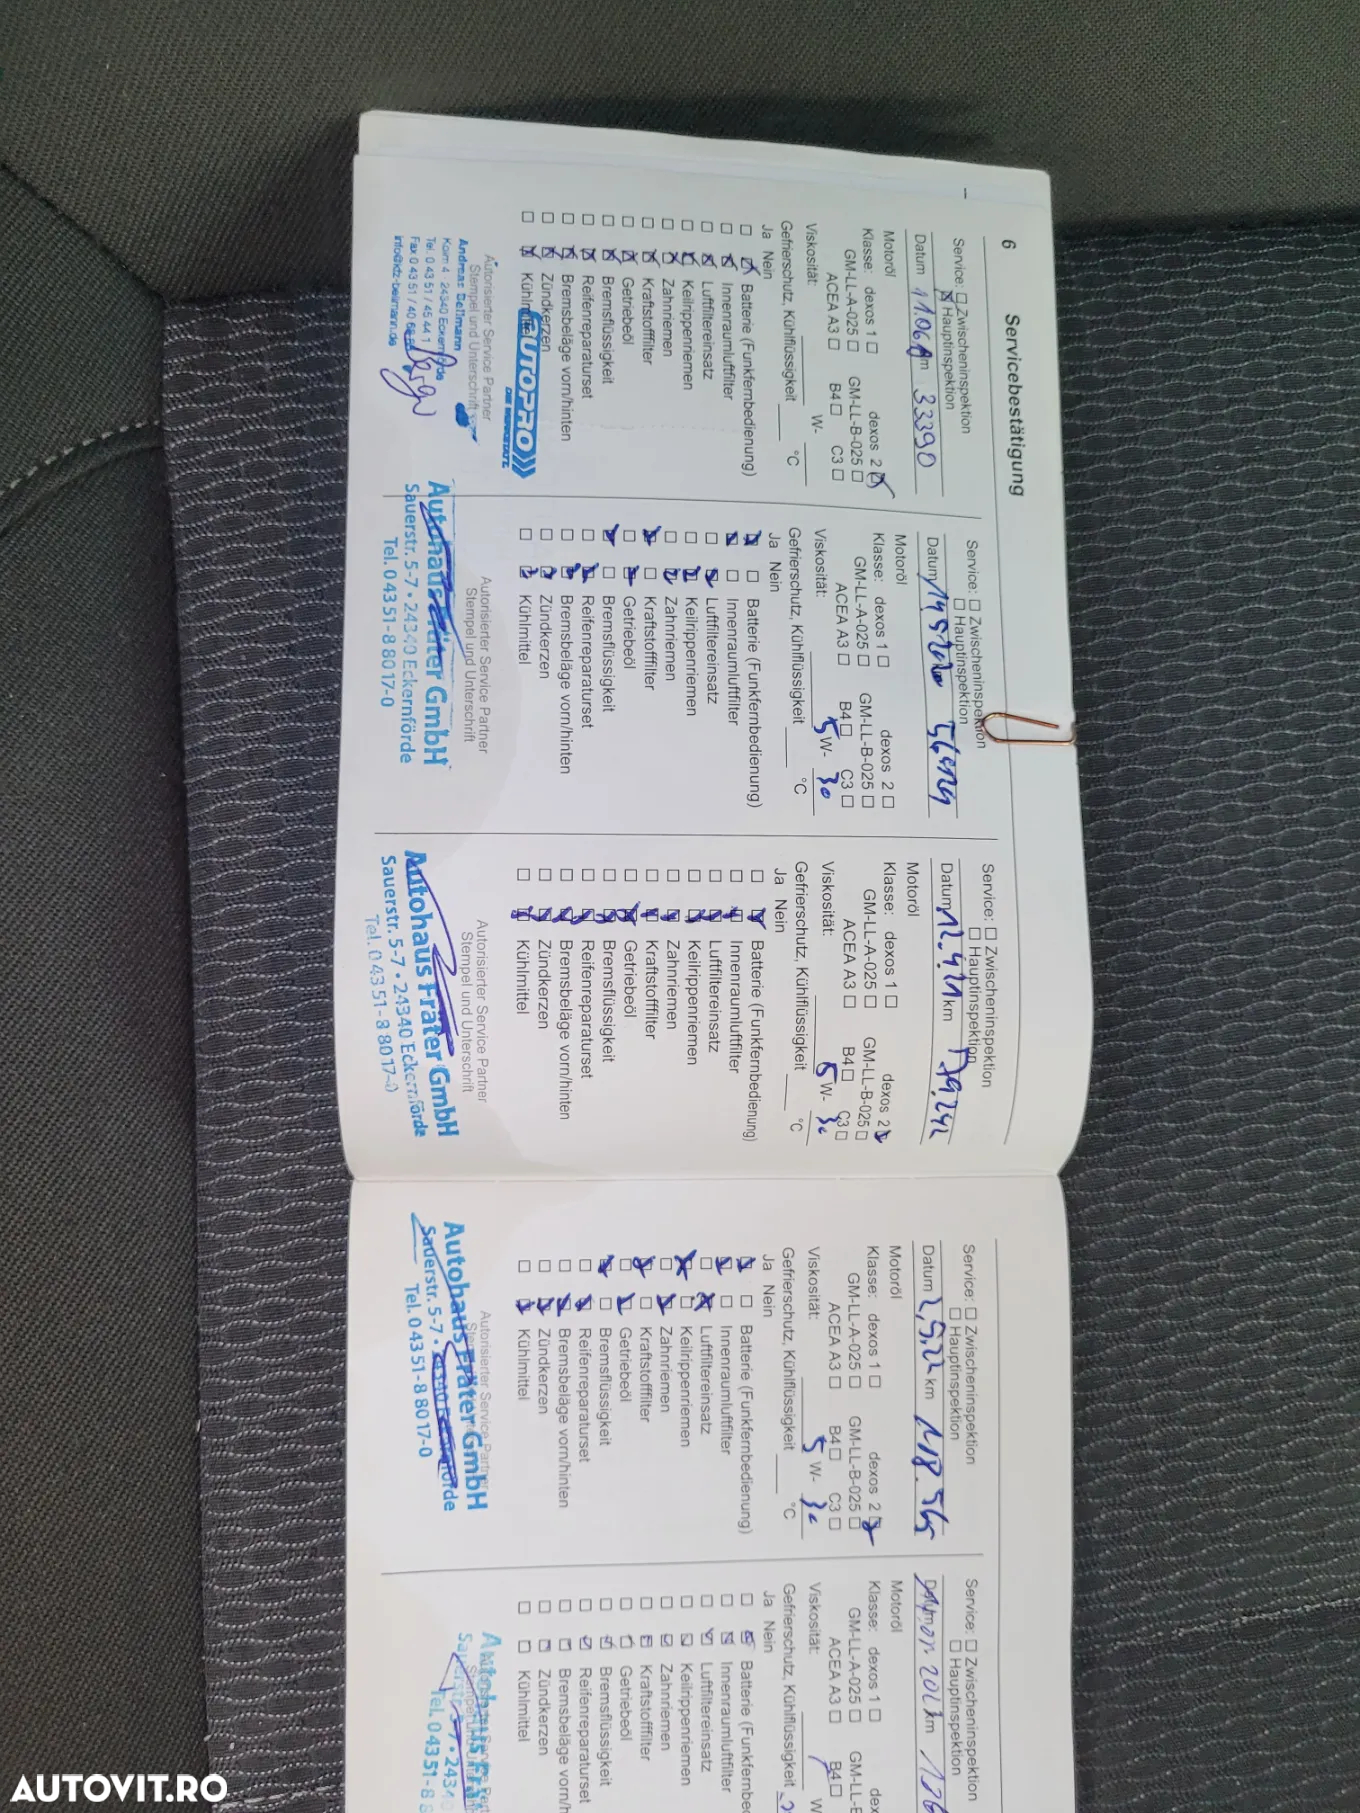 6 Servicebestätigung
Service: Zwischeninspektion
Hauptinspektion
Datum km 33390
Motoröl
Klasse: dexos 1 dexos 2
GM-LL-A-025 GM-LL-B-025
ACEA A3 B4 C3
Viskosität: W-
Gefrierschutz, Kühlflüssigkeit °C
Ja Nein
Batterie (Funkfernbedienung)
Innenraumluftfilter
Luftfiltereinsatz
Keilrippenriemen
Zahnriemen
Kraftstofffilter
Getriebeöl
Bremsflüssigkeit
Reifenreparaturset
Bremsbeläge vorn/hinten
Zündkerzen
Kühlmittel
AUTOPRO
DIE WERKSTATT
Autorisierter Service Partner
Stempel und Unterschrift
Andreas Bellmann
24340 Eckernförde
Tel. 0 43 51 / 45 44 1
Fax 0 43 51 / 40
info@kfz-bellmann.de
Service: Zwischeninspektion
Hauptinspektion
Datum
Motoröl
Klasse: dexos 1 dexos 2
GM-LL-A-025 GM-LL-B-025
ACEA A3 B4 C3
Viskosität: 5 W- 30
Gefrierschutz, Kühlflüssigkeit °C
Ja Nein
Batterie (Funkfernbedienung)
Innenraumluftfilter
Luftfiltereinsatz
Keilrippenriemen
Zahnriemen
Kraftstofffilter
Getriebeöl
Bremsflüssigkeit
Reifenreparaturset
Bremsbeläge vorn/hinten
Zündkerzen
Kühlmittel
Autorisierter Service Partner
Stempel und Unterschrift
Autohaus Fräter GmbH
Sauerstr. 5-7 • 24340 Eckernförde
Tel. 0 43 51 - 8 80 17-0
Service: Zwischeninspektion
Hauptinspektion
Datum 12.4.21 km 79.242
Motoröl
Klasse: dexos 1 dexos 2
GM-LL-A-025 GM-LL-B-025
ACEA A3 B4 C3
Viskosität: 5 W- 30
Gefrierschutz, Kühlflüssigkeit °C
Ja Nein
Batterie (Funkfernbedienung)
Innenraumluftfilter
Luftfiltereinsatz
Keilrippenriemen
Zahnriemen
Kraftstofffilter
Getriebeöl
Bremsflüssigkeit
Reifenreparaturset
Bremsbeläge vorn/hinten
Zündkerzen
Kühlmittel
Autorisierter Service Partner
Stempel und Unterschrift
Autohaus Fräter GmbH
Sauerstr. 5-7 • 24340 Eckernförde
Tel. 0 43 51 - 8 80 17-0
Service: Zwischeninspektion
Hauptinspektion
Datum 2.5.22 km 118.565
Motoröl
Klasse: dexos 1 dexos 2
GM-LL-A-025 GM-LL-B-025
ACEA A3 B4 C3
Viskosität: 5 W- 30
Gefrierschutz, Kühlflüssigkeit °C
Ja Nein
Batterie (Funkfernbedienung)
Innenraumluftfilter
Luftfiltereinsatz
Keilrippenriemen
Zahnriemen
Kraftstofffilter
Getriebeöl
Bremsflüssigkeit
Reifenreparaturset
Bremsbeläge vorn/hinten
Zündkerzen
Kühlmittel
Autorisierter Service Partner
Autohaus Fräter GmbH
Sauerstr. 5-7 • 24340 Eckernförde
Tel. 0 43 51 - 8 80 17-0
Service: Zwischeninspektion
Hauptinspektion
km
Motoröl
Klasse: dexos 1
GM-LL-A-025
ACEA A3 B4
Viskosität:
Gefrierschutz, Kühlflüssigkeit
Ja Nein
Batterie (Funkfernbe
Innenraumluftfilter
Luftfiltereinsatz
Keilrippenriemen
Zahnriemen
Kraftstofffilter
Getriebeöl
Bremsflüssigkeit
Reifenreparaturset
Bremsbeläge vorn/
Zündkerzen
Kühlmittel
Autohaus Frä
Tel. 0 43 51 - 8 8
AUTOVIT.RO